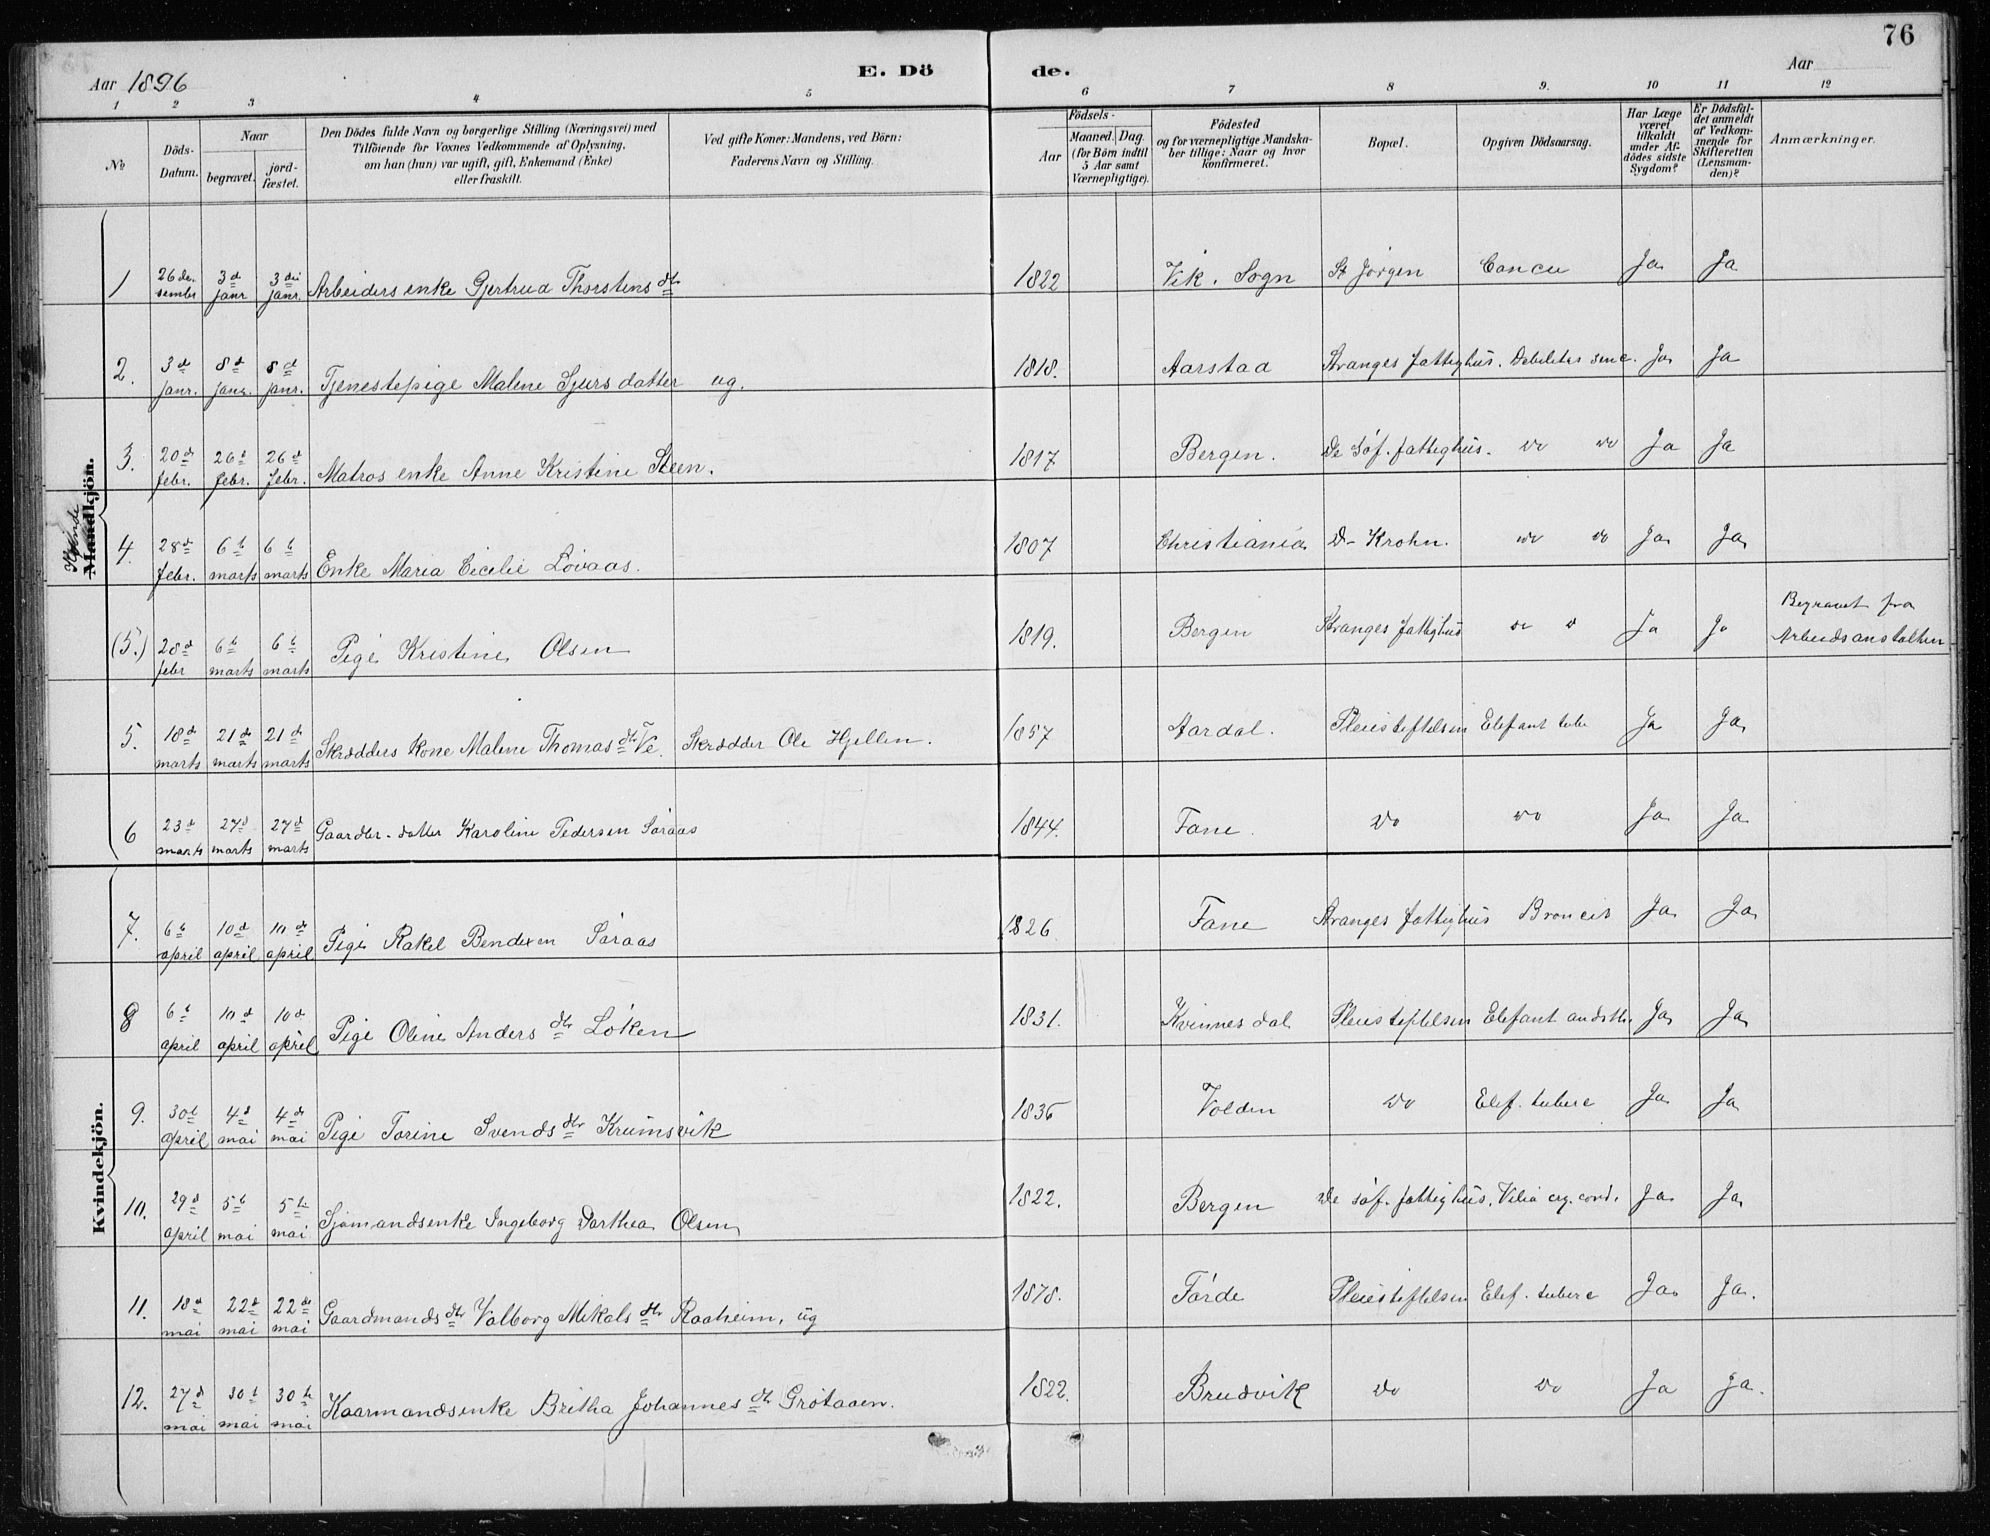 76
Aar 1896
E. Dö
de.
Aar
1 2 3 4 5 6 7 8 9. 10 11 12
No
Döds-Datum.
Naar
begravet.
jord-fæstet.
Den Dödes fulde Navn og borgerlige Stilling (Næringsvei) med
Tilföiende for Voxnes Vedkommende af Oplysning,
om han (hun) var ugift, gift, Enkemand (Enke)
eller fraskilt.
Ved gifte Koner: Mandens, ved Börn:
Faderens Navn og Stilling.
Födsels-
Aar
Maaned. Dag.
(for Börn indtil
5 Aar samt
Værnepligtige).
Födested
og for værnepligtige Mandska-
ber tillige: Naar og hvor
konfirmeret.
Bopæl.
Opgiven Dödsaarsag.
Har Læge
været
tilkaldt
under Af-
dödes sidste
Sygdom?
Er Dödsfal-
det anmeldt
af Vedkom-
mende for
Skifteretten
(Lensman-
den)?
Anmærkninger.
Mandkjön.
Kvinde
Kvindekjön.
1 26 de sembr 3 d janr 3 die janr. Arbeiders enke Gjertrud Thorstens dtr 1822 Vik. Sogn St Jørgen Cancer Ja Ja
2. 3 d janr. 8 d janr. 8 d janr. Tjenestepige Malene Sjurs datter ug. 1818. Aarstad Stranges fattighus. Debilitas sene. Ja Ja
3. 20 d febr. 26 d febr. 26 d febr. Matros enke Anne Kristine Steen. 1817 Bergen. De Søf. fattighus. do do Ja Ja
4. 28 d febr. 6 t marts 6 t marts Enke Maria Cicelie Løvaas. 1807 Christiania D- Krohn. do do Ja Ja
(5.) 28 d febr 6 t marts 6 t marts Pige Kristine Olsen 1819. Bergen Stranges fattighus do d Ja Ja Begravet fra
Arbeidsanstalten
5. 18 d marts 21 d marts 21 d marts Skrædders kone Malene Thomas dtr Ve. Skrædder Ole Hjellen. 1857 Aardal. Pleiestiftelsen Elefant tube Ja Ja
6 23 d marts 27 d marts 27 d marts Gaardbr. datter Karoline Pedersen Søraas 1844. Fane. do do Ja Ja
7. 6 t april 10 d april 10 d april Pige Rakel Bendixen Søraas 1826 Fane Stranges fattighus Broncit Ja Ja
8 6 t april 10 d april 10 d april Pige Oline Anders dtr Løken 1831. Kvinnesdal Pleiestiftelsen Elefant anæsth. Ja Ja
9. 30 t april 4 d mai 4 d mai Pige Torine Svends dtr Krumsvik 1836 Volden do Elef. tuberc Ja Ja
10. 29 d april 5 t mai 5 te mai Sjømandsenke Ingeborg Darthea Olsen 1822. Bergen De søf. fattighus. Vitia org. cord. Ja Ja
11. 18 d mai 22 d mai 22 de mai Gaardmands dtr Valborg Mikals dtr Raaheim, ug 1878. Førde Pleiestiftelsen Elef. tuberc Ja Ja.
12. 27 d mai 30 t mai 30 te mai Kaarmandsenke Britha Johannes dtr Grøtaaen. 1822. Brudvik do do Ja Ja.